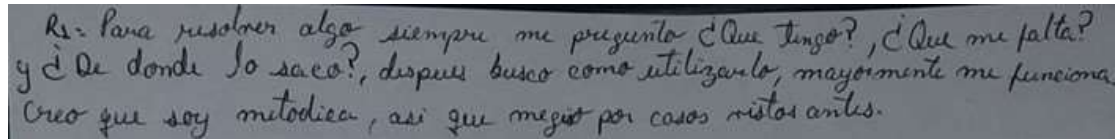 R1: Para resolver algo siempre me pregunto ¿Que tengo?, ¿Que me falta?
y ¿De donde lo saco?, despues busco como utilizarlo, mayormente me funciona.
Creo que soy metodica, asi que por casos vistos antes.